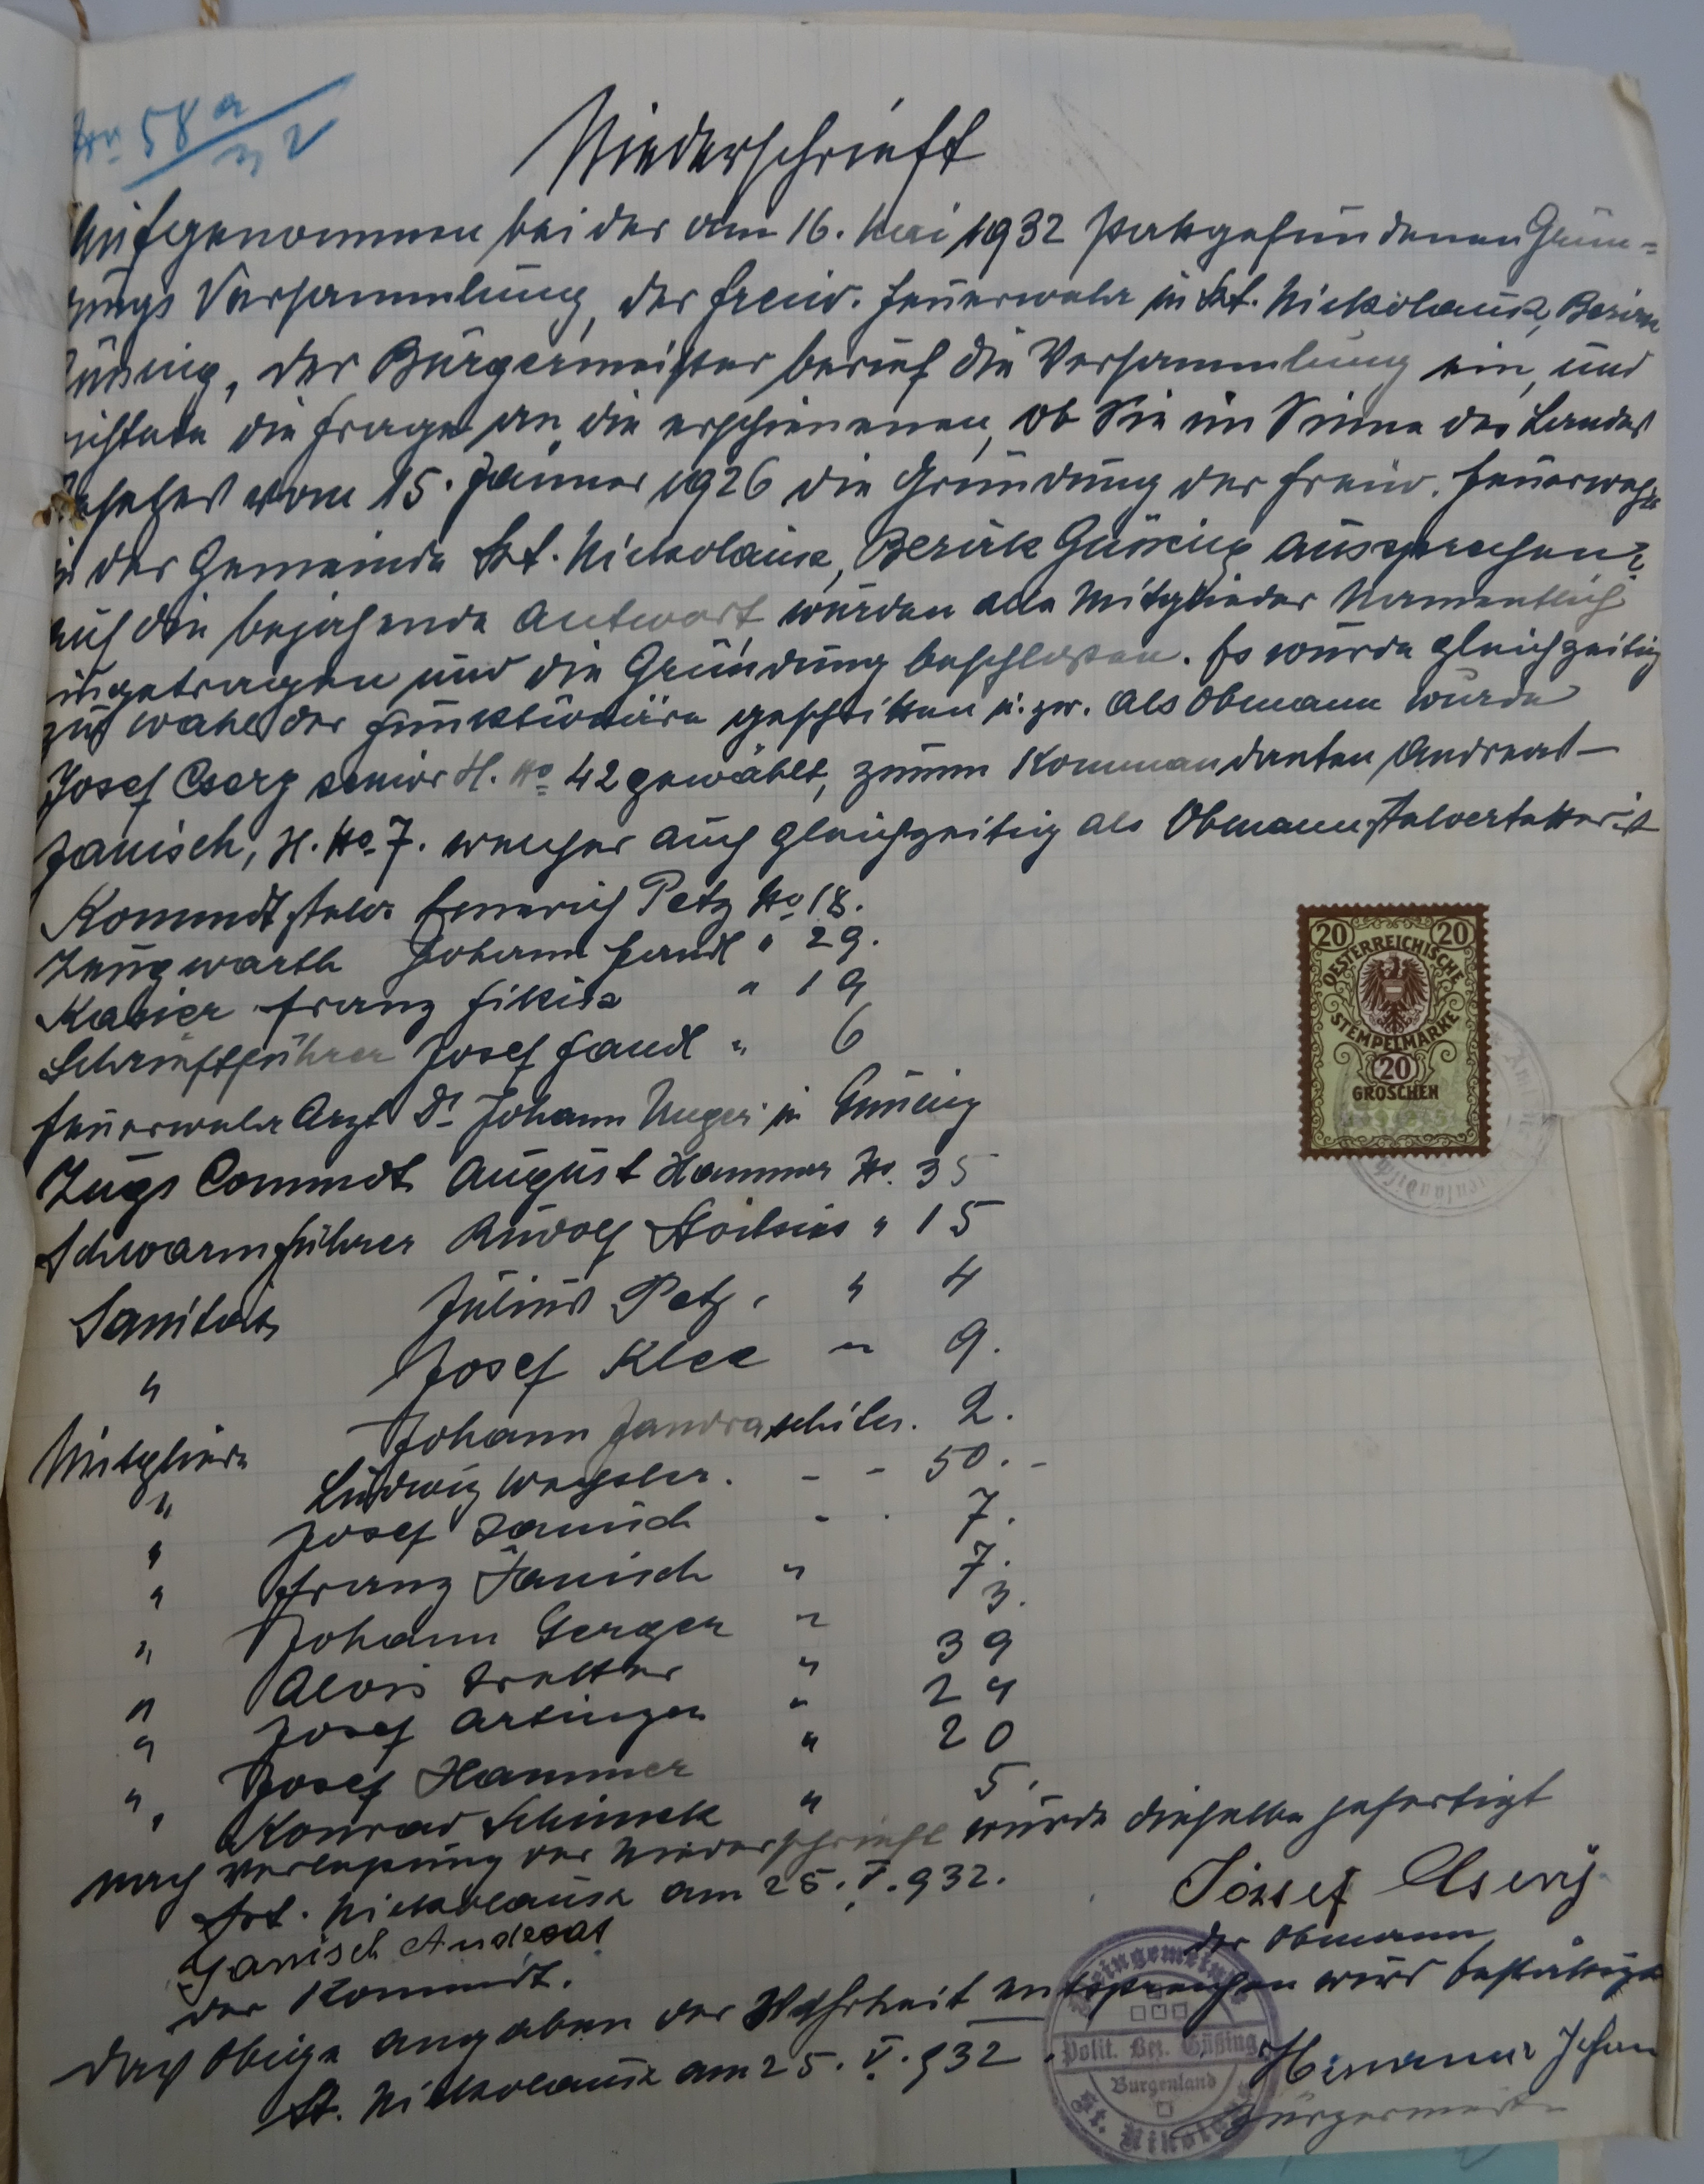 No 58a/32
Niederschrieft
Aufgenommen bei der am 16. Mai 1932 stattgefundenen Grün=
dungs Versammlung, der freiw. Feuerwehr in Skt. Nickolaus, Bezirk
Güssing, der Bürgermeister berief die Versammlung ein, und
richtete die Frage an die erschienenen, ob Sie im Sinne des Landes
Gesetzes vom 15. Jänner 1926 die Gründung der freiw. Feuerwehr
in der Gemeinde Skt. Nickolaus, Bezirk Güssing aussprechen?
auf die bejahende Antwort wurden alle Mitglieder Namentlich
eingetragen und die Gründung beschlossen. Es wurde gleichzeitig
zur Wahl der Funktionäre geschritten u. zw. als Obmann wurde
Josef Csery senior H. No 42 gewählt, zumm Kommandanten Andreas
Janisch, H. No 7. welcher auch gleichzeitig als Obmannstelvertetter ist
Kommdt Stelv. Emmerich Petz No 18.
Zeugwarth Johann Fandl " 29.
Kasier Franz Fikisz " 19
Schrieftführer Josef Fandl " 6
Feuerwehr Arzt Dr Johann Unger in Güssing
Zugs Commdt August Hammer No. 35
Schwarmführer Rudolf " 15
Sanitäts Julius Petz " 4
" Josef Klee " 9.
Mitglieder Johann Jandraschits. 2.
" Ludwig Wechsler. - - 50.-
" Josef Janisch - . 7.
" Franz Janisch " 7.
" Johann Gerger " 3.
" Alois " 39
" Josef Artinger " 24
" Josef Hammer " 20
" Konrad Schimek " 5.
nach Verlesung der Niederschrieft wurde dieselbe gefertigt
Skt. Nickolaus am 25. V. 932.
József Csery
Janisch Andreas
der Obmann
der Kommdt.
Dass Obige angaben der Wahrheit entsprechen wird bestätigt
St. Nickolaus am 25. V. 932.
Johan
Bürgermeister
20 20
OESTERREICHISCHE
STEMPELMARKE
20
GROSCHEN
Polit. Bez. Güßing
Burgenland
St. Nikolaus